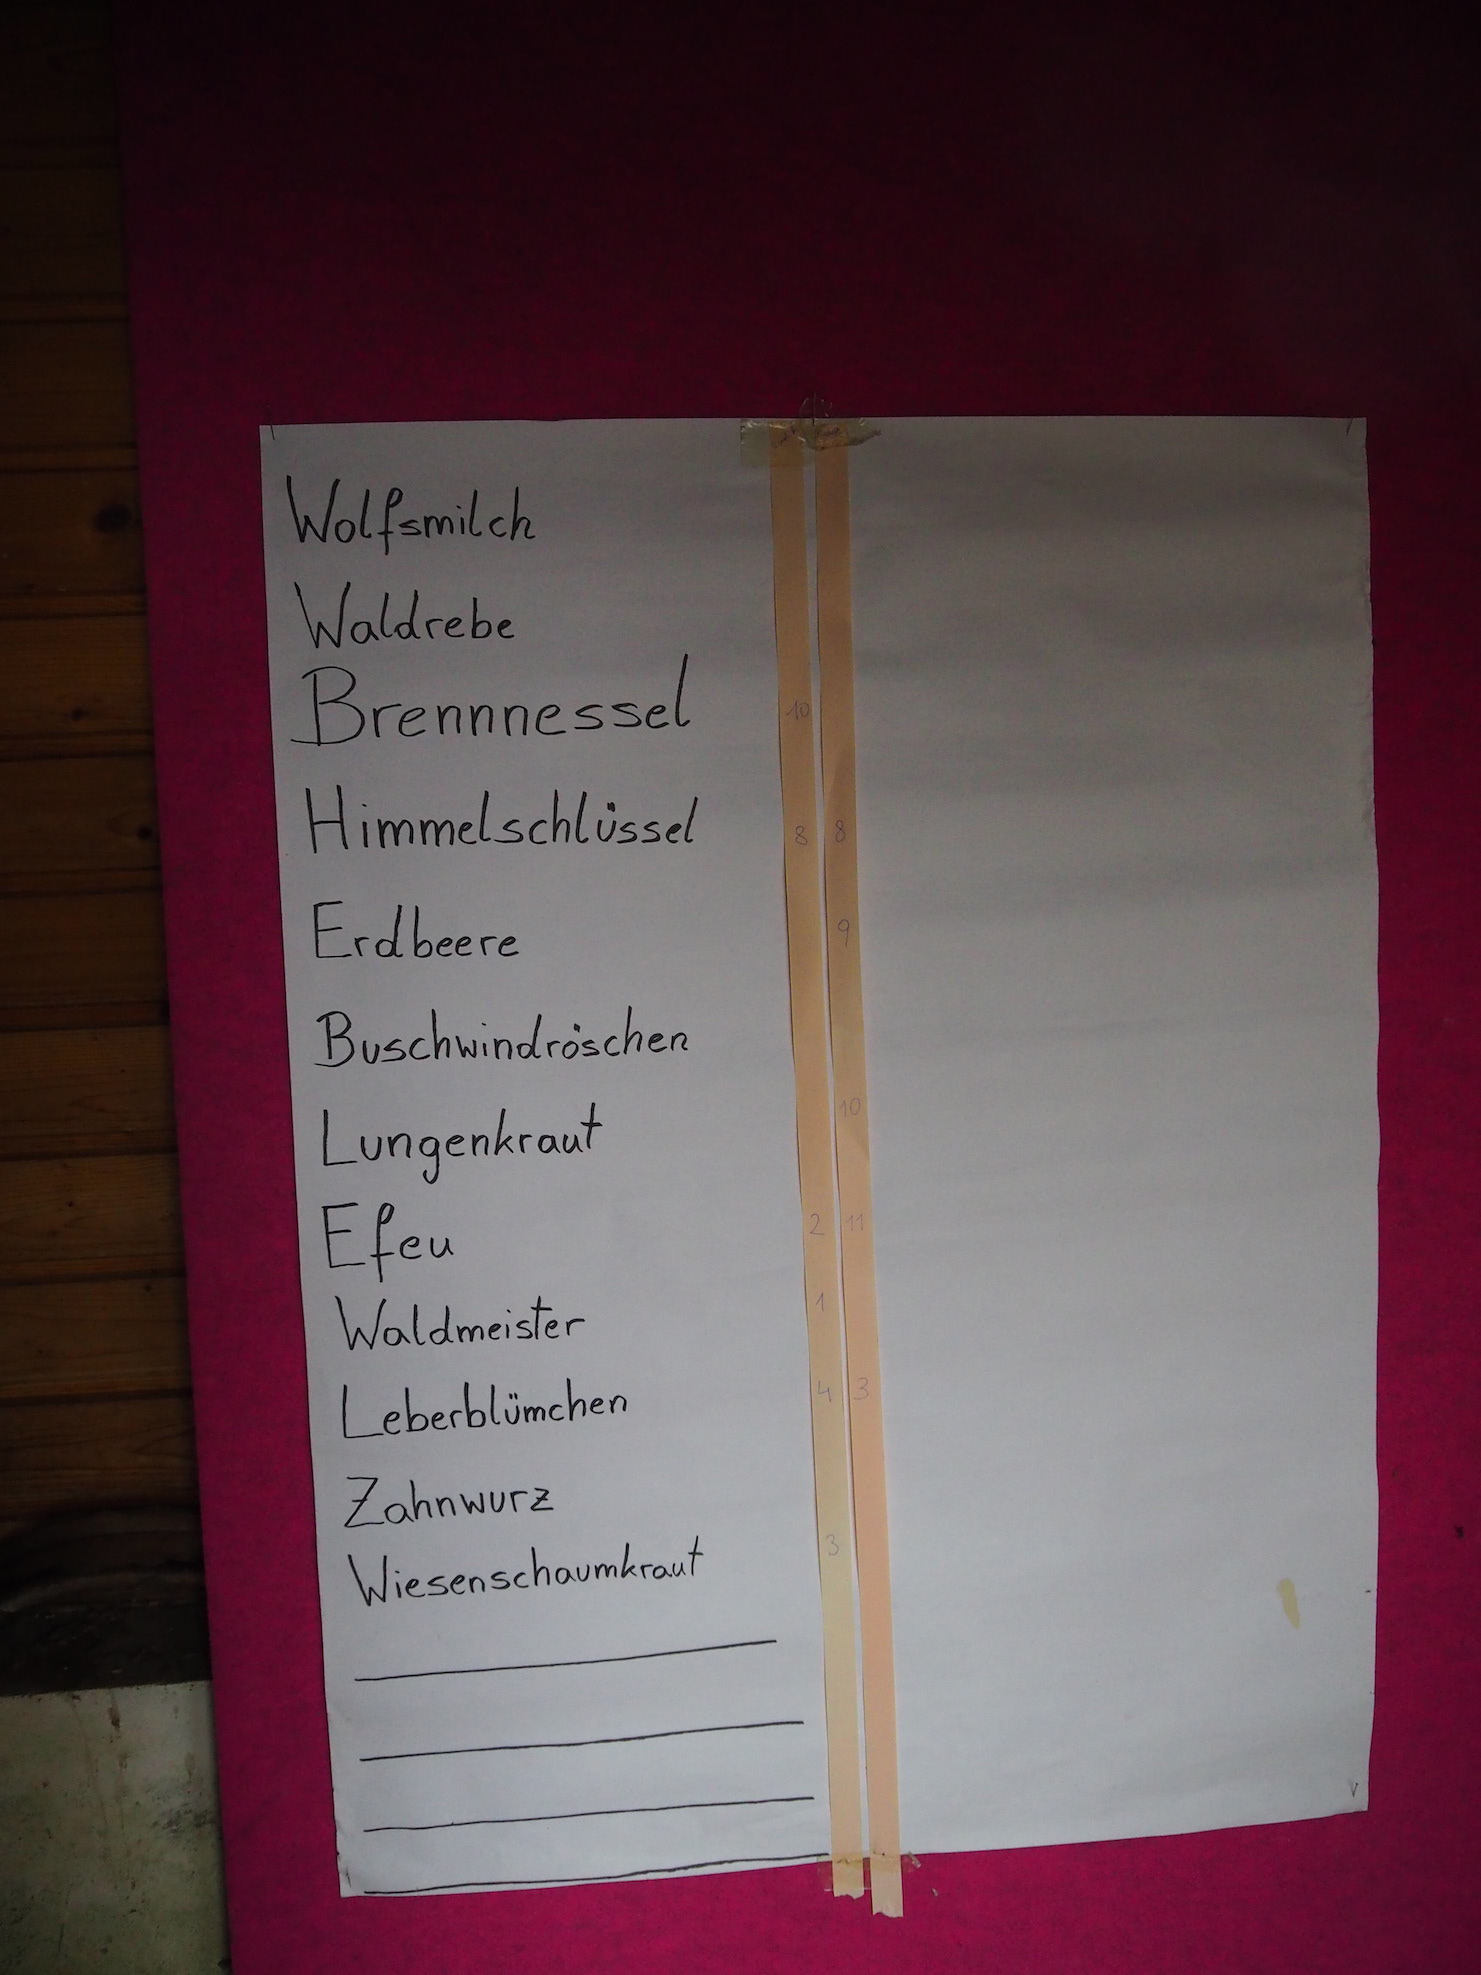 Wolfsmilch
Waldrebe
Brennnessel 10
Himmelschlüssel 8 8
Erdbeere 9
Buschwindröschen
Lungenkraut 10
Efeu 2 11
Waldmeister 1
Leberblümchen 4 3
Zahnwurz
Wiesenschaumkraut 3